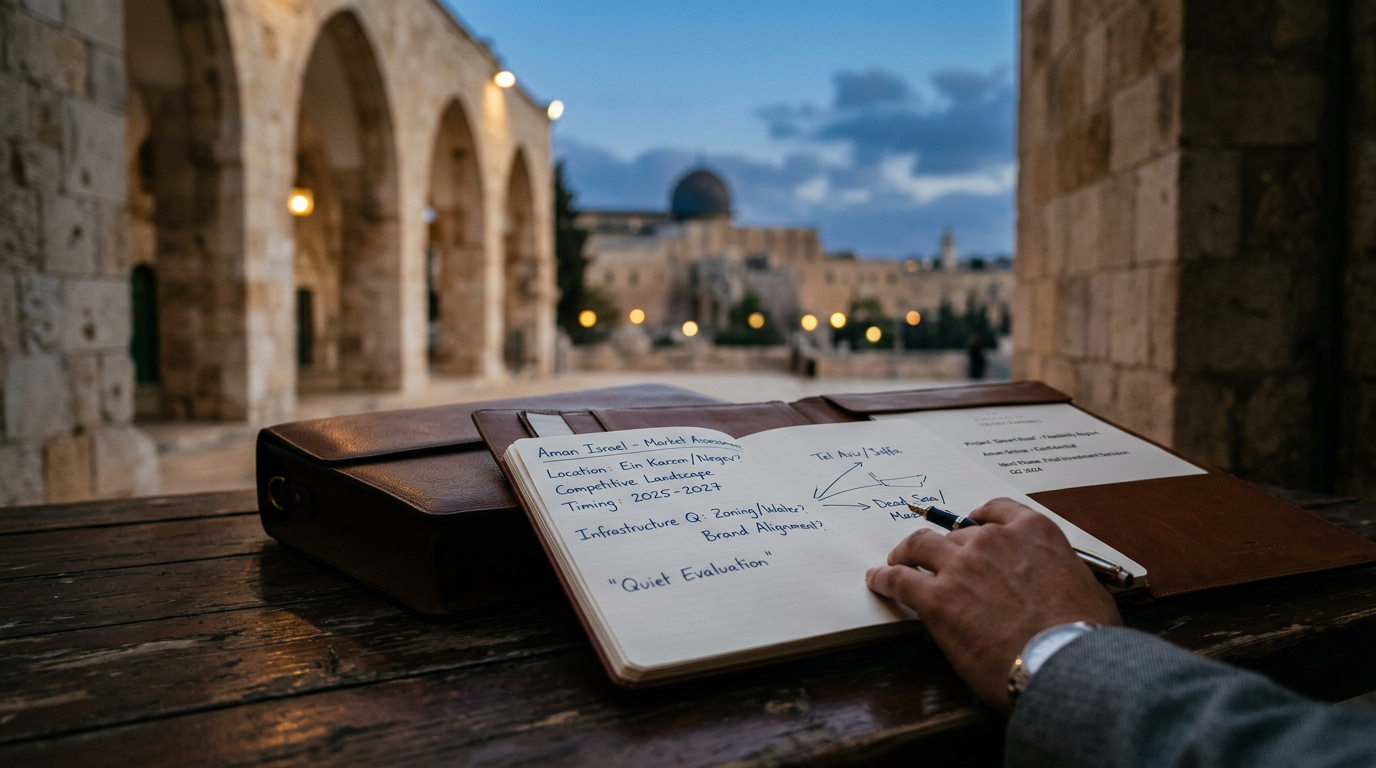 Aman Israel - Market Assessment
Location: Ein Karem/Negev?
Competitive Landscape
Timing: 2025-2027
Infrastructure Q: Zoning/Water?
Brand Alignment?
"Quiet Evaluation"
Tel Aviv/Jaffa
Dead Sea/
Project "Desert Rose" - Feasibility Report
- Confidential
Next Phase: Final Investment Decision
Q2 2024